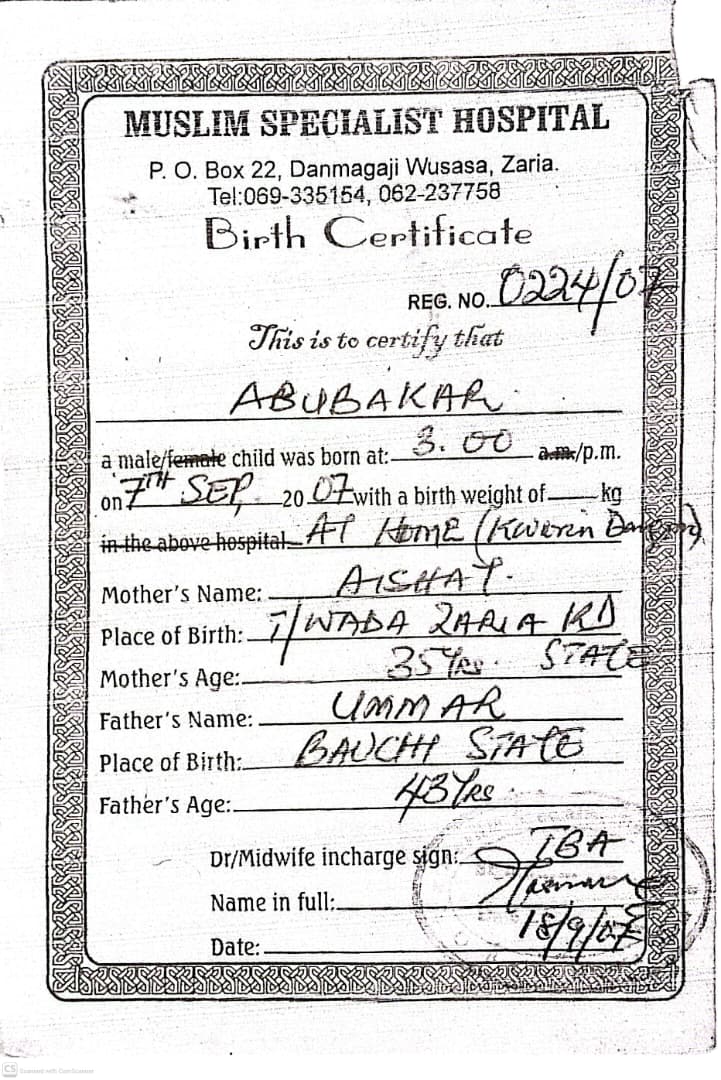 MUSLIM SPECIALIST HOSPITAL
P. O. Box 22, Danmagaji Wusasa, Zaria.
Tel:069-335154, 062-237758
Birth Certificate
REG. NO. 0224/07
This is to certify that
ABUBAKAR
a male/female child was born at: 3.00 a.m./p.m.
on 7TH SEP, 2007 with a birth weight of kg
in the above hospital AT HOME (Kwarin
Mother's Name: AISHAT.
Place of Birth: T/WADA ZARIA KD
STATE
Mother's Age: 35Yrs.
Father's Name: UMMAR
Place of Birth: BAUCHI STATE
Father's Age: 43Yrs.
Dr/Midwife incharge sign: TBA
Name in full:
Date: 18/9/07
CS Scanned with CamScanner